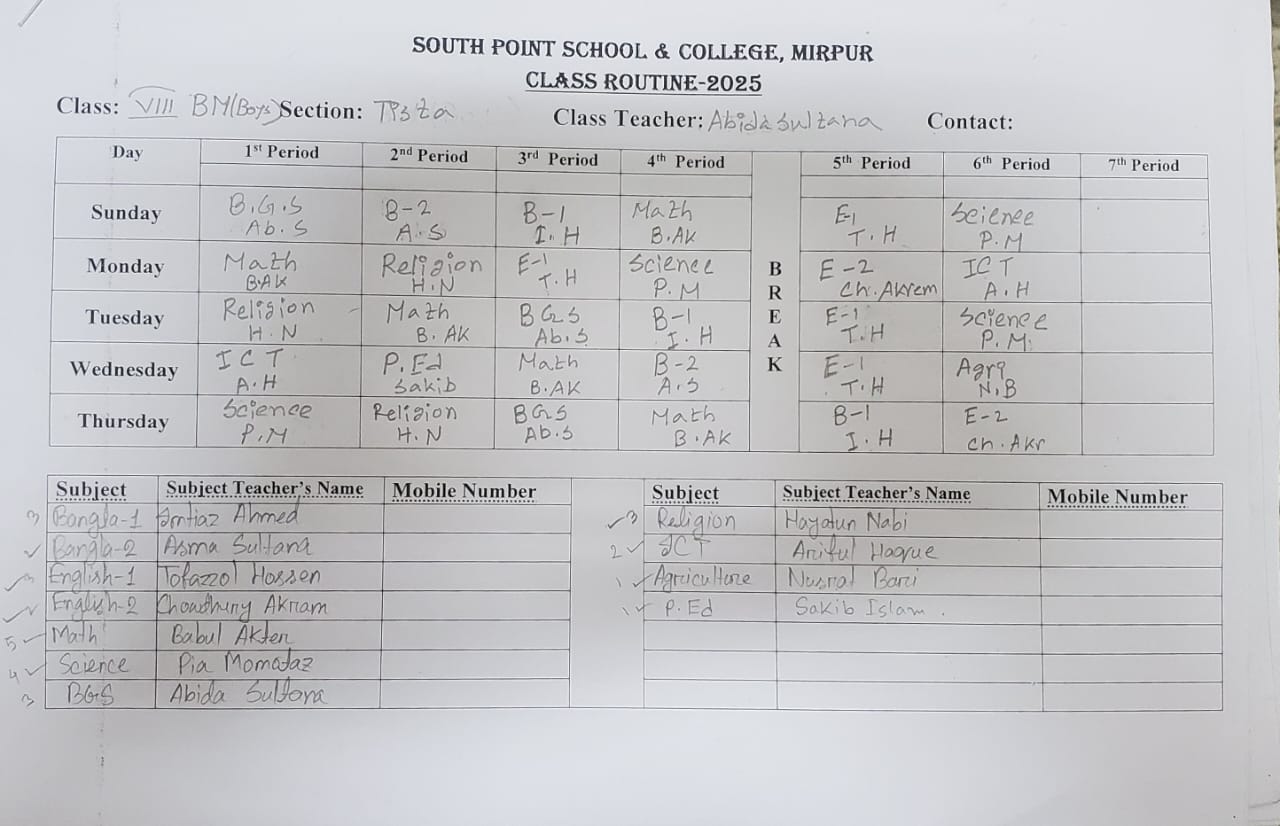 SOUTH POINT SCHOOL & COLLEGE, MIRPUR
CLASS ROUTINE-2025
Class: VIII BM(Boys) Section: Tista Class Teacher: Abida Sultana Contact:
Day 1st Period 2nd Period 3rd Period 4th Period 5th Period 6th Period 7th Period
Sunday B.G.S B-2 B-1 Math E-1 Science
Ab.S A.S I.H B.AK T.H P.M
Monday Math Religion E-1 Science B E-2 ICT
B.AK H.N T.H P.M R Ch.Akrem A.H
Tuesday Religion Math BGS B-1 E E-1 Science
H.N B.AK Ab.S I.H A T.H P.M
Wednesday ICT P.Ed Math B-2 K E-1 Agri
A.H Sakib B.AK A.S T.H N.B
Thursday Science Religion BGS Math B-1 E-2
P.M H.N Ab.S B.AK I.H Ch.Akr
Subject Subject Teacher's Name Mobile Number Subject Subject Teacher's Name Mobile Number
3 Bangla-1 Imtiaz Ahmed ✓3 Religion Hayatun Nabi
✓ Bangla-2 Asma Sultana 2✓ ICT Ariful Haque
English-1 Tofazzol Hossen 1✓ Agriculture Nusrat Bari
✓ English-2 Chowdhury Akram 1✓ P.Ed Sakib Islam.
5✓ Math Babul Akter
4✓ Science Pia Momataz
3 BGS Abida Sultana